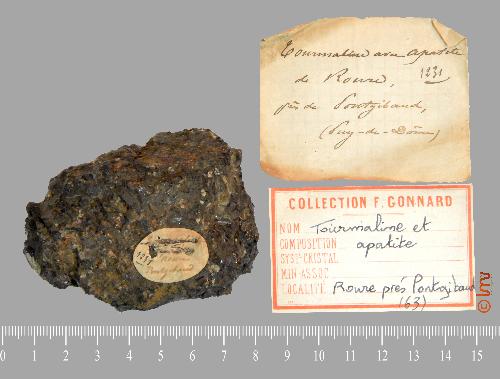 Tourmaline avec apatite
de Roure, 1231
près de Pontgibaud,
(Puy-de-Dôme)
COLLECTION F. GONNARD
NOM Tourmaline et
COMPOSITION apatite
SYST. CRISTAL
MIN. ASSOC
LOCALITÉ Roure près Pontgibaud
(63)
1231
Roure
Pontgibaud
© lmv
0 1 2 3 4 5 6 7 8 9 10 11 12 13 14 15